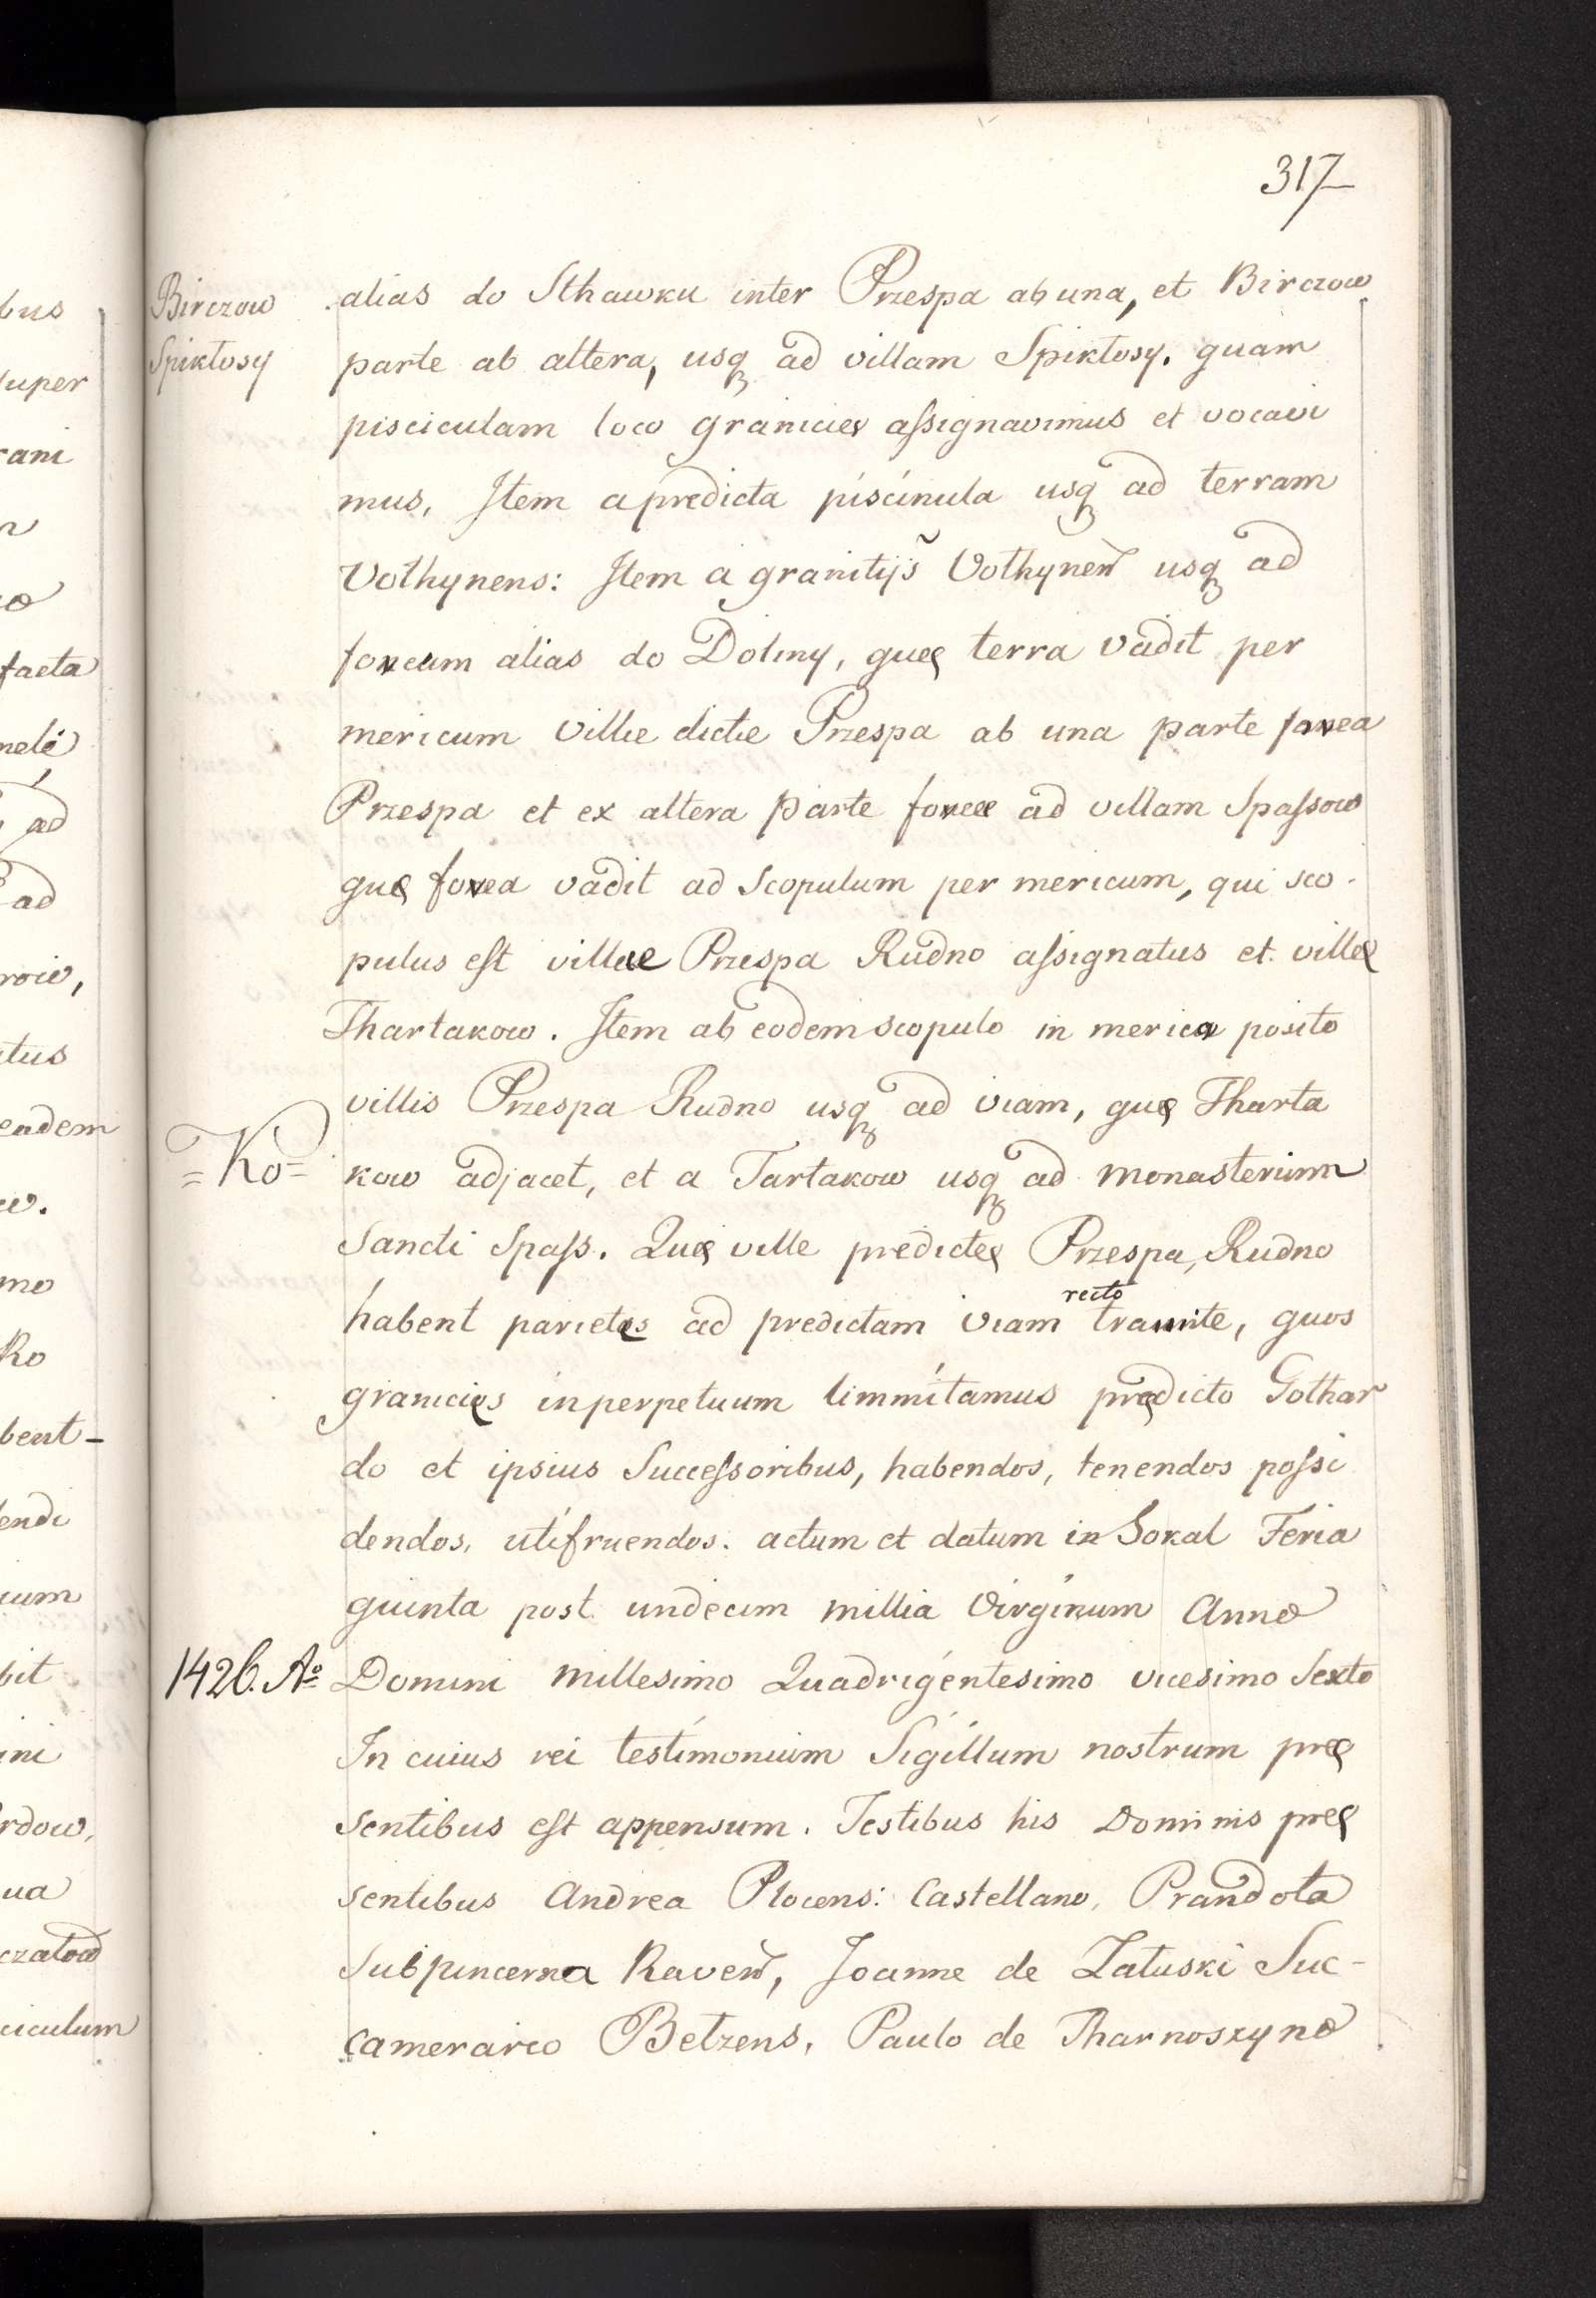 317
Birczow
Spiktosy
alias do Sthawku inter Przespa ab una, et Birczow
parte ab altera, usq ad villam Spiktosy. quam
pisciculam loco granicies aſsignavimus et vocavi
mus, Item a predicta piscinula usq ad terram
Vothynens: Item a granitijs Vothynen usq ad
foveam alias do Doliny, queę terra vadit per
mericum Villæ dictæ Przespa ab una parte fovea
Przespa et ex altera parte foveæ ad villam Spaſsow
quę fovea vadit ad scopulum per mericum, qui sco-
pulus eſt villae Przespa Rudno aſsignatus et villeę
Thartakow. Item ab eodem scopulo in merica posito
villis Przespa Rudno usq ad viam, quę Tharta
=Ko= kow adjacet, et a Tartakow usq ad monasterium
Sancti Spaſs. Quę ville predicteę Przespa, Rudno
habent parietes ad predictam viam recto tramite, quos
granicięs inperpetuum limmitamus prędicto Gothar
do et ipsius Succeſsoribus, habendos, tenendos poſsi
dendos, utifruendos. actum et datum in Sokal Feria
quinta post undecim millia Virginum Anno
1426. Aº Domini millesimo Quadrigentesimo vicesimo Sexto
In cuius rei testimonium Sigillum nostrum preę
sentibus eſt appensum. Testibus his Dominis preę
sentibus Andrea Plocens: Castellano, Prandota
Subpincerna Raven, Joanne de Zatuski Suc-
camerario Betzens, Paulo de Tharnoszyno
bus
super
rani
facta
ad
ad
tus
eadem
mo
Ko
bent-
endi
bit
ini
rdow,
ua
czatow
ciculum